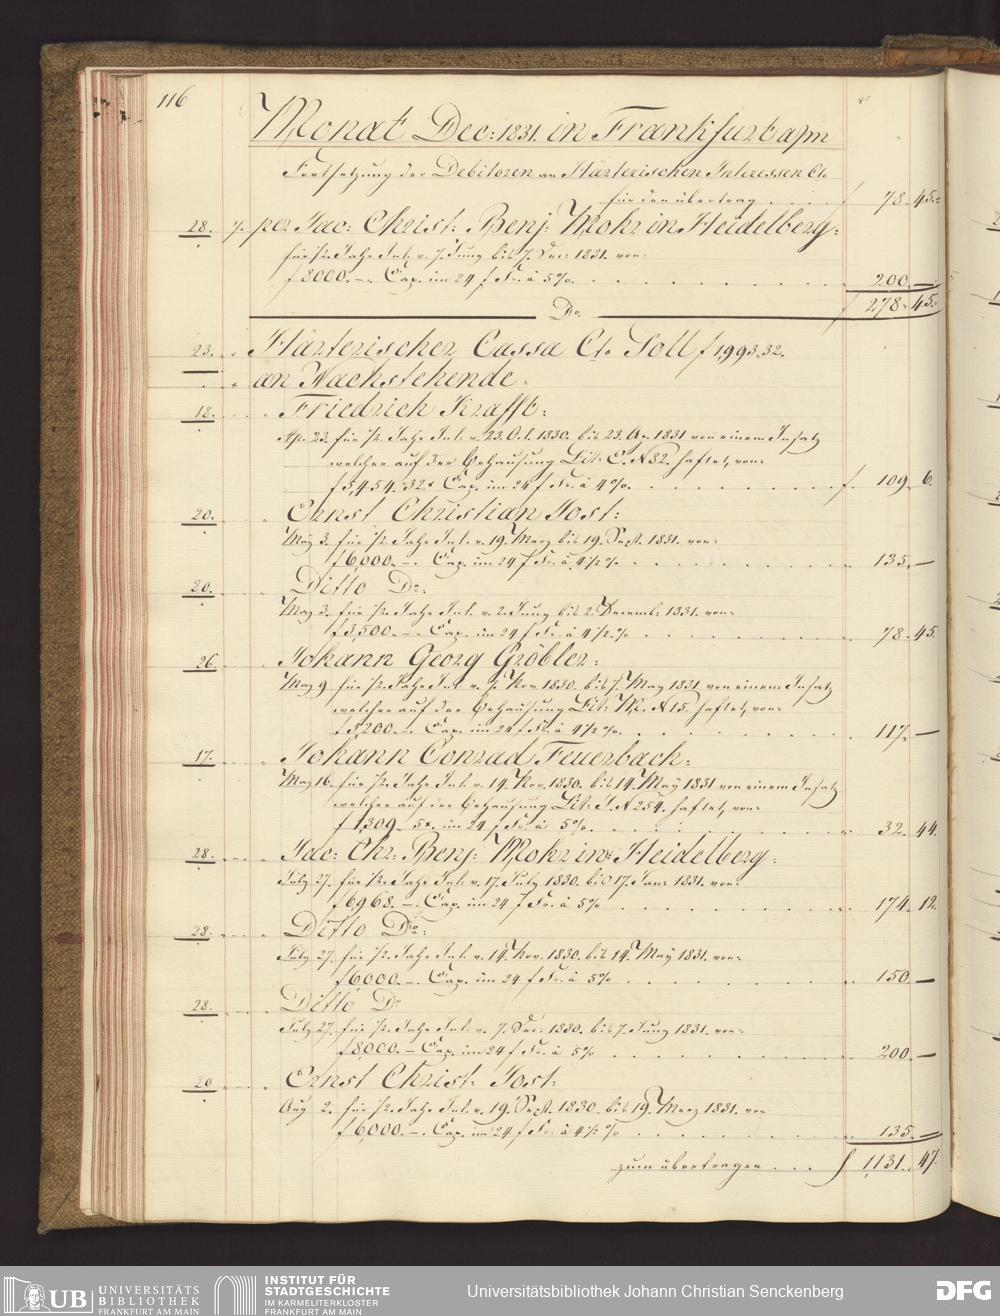 116
Monat Dec: 1831. in Frankfurt a/m
Fortsetzung der Debitoren an Härterischen Interessen Cto
für den übertrag . . . . f 78. 45.
28. 7. per Jac: Christ: Benj: Mohr in Heidelberg:
für ½. Jahr Int. v. 7. Juny bis 7. Dec: 1831. von:
f 8000.–. Cap. im 24 f Fs. à 5%. . . . . . . . 200. —
f 278. 45.
Do.
23. Härterischer Cassa Cto Soll f 1,993. 32.
an Nachstehende:
18. Friedrich Krafft:
Apr. 23. für ½. Jahr Int. v. 23. Oct. 1830. bis 23. Ap. 1831 von einem Insatz
welcher auf der Behausung Lit: C. N 32. haftet, von:
f 5,454. 32x Cap. im 24 f Fs. à 4%. . . . . . f 109. 6.
20. Ernst Christian Jost:
May 3. für ½ Jahr Int. v. 19. Merz bis 19. Sept. 1831. von:
f 6,000. –. Cap. im 24 f Fs. à 4½% . . . . . . 135. —
20. Ditto Do:
May 3. für ½. Jahr Int. v. 2. Juny bis 2. Decemb: 1831. von:
f 3,500. –. Cap. im 24 f Fs. à 4½.% . . . . . . 78. 45.
26. Johann Georg Gröbler:
May 9 für ½. Jahr Int. v. 7. Nov. 1830. bis 7. May 1831 von einem Insatz
welcher auf der Behausung Lit: M. N 15. haftet, von:
f 5,200. –. Cap. im 24 f Fs. à 4½%. . . . . . . 117. —
17. Johann Conrad Feuerbach:
May 16. für ½. Jahr Int. v. 14. Nov. 1830. bis 14. May 1831 von einem Insatz
welcher auf der Behausung Lit: J. N 254. haftet, von:
f 1,309. 5x. im 24 f Fs. à 5%. . . . . . . 32. 44.
28. Jac: Chr: Benj: Mohr in Heidelberg:
July 27. für ½. Jahr Int. v. 17. July 1830. bis 17. Jan: 1831. von:
f 6,968. –. Cap. im 24 f Fs. à 5% . . . . . . 174. 12.
28. Ditto Do:
July 27. für ½. Jahr Int. v. 14. Nov. 1830. bis 14. May 1831. von:
f 6,000. –. Cap. im 24 f Fs. à 5% . . . . . . 150. —
28. Ditto Do
July 27. für ½. Jahr Int. v. 7. Dec: 1830. bis 7. Juny 1831. von:
f 8,000. – Cap. im 24 f Fs. à 5% . . . . . . 200. —
20 Ernst Christ: Jost:
Aug 2. für ½. Jahr Int. v. 19. Sept. 1830. bis 19. Merz 1831. von
f 6,000. –. Cap. im 24 f Fs. à 4½% . . . . . . 135. —
zum übertragen . . . f 1,131. 47.
UB UNIVERSITÄTS BIBLIOTHEK FRANKFURT AM MAIN
INSTITUT FÜR STADTGESCHICHTE IM KARMELITERKLOSTER FRANKFURT AM MAIN
Universitätsbibliothek Johann Christian Senckenberg
DFG